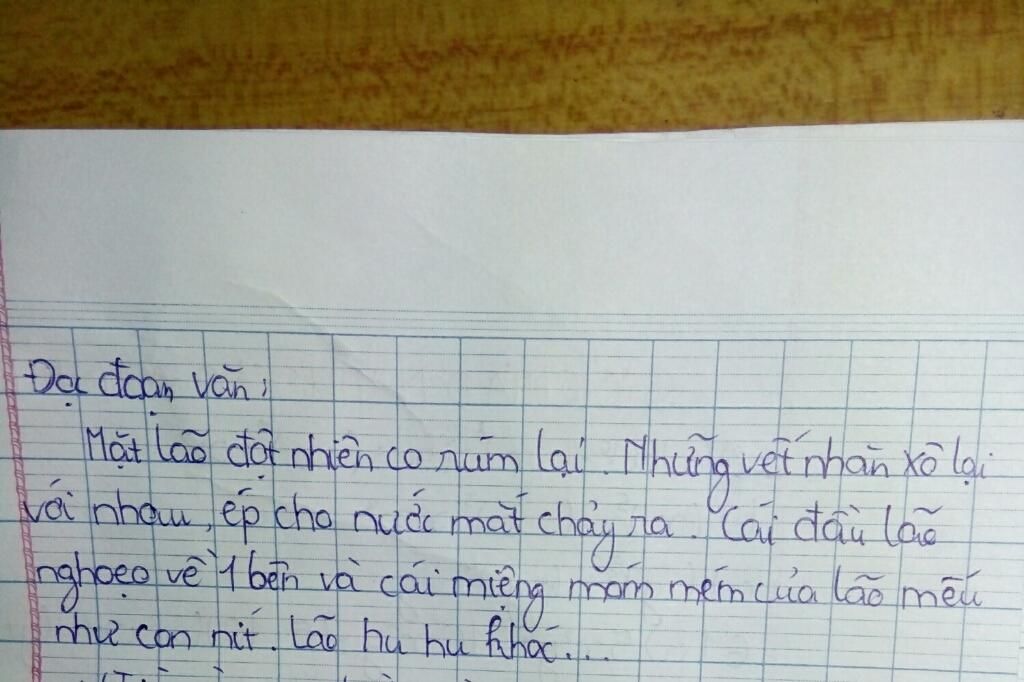 Đọc đoạn văn:
Mặt lão đột nhiên co rúm lại. Những vết nhăn xô lại
với nhau, ép cho nước mắt chảy ra. Cái đầu lão
nghoẹo về 1 bên và cái miệng móm mém của lão mếu
như con nít. Lão hu hu khóc...